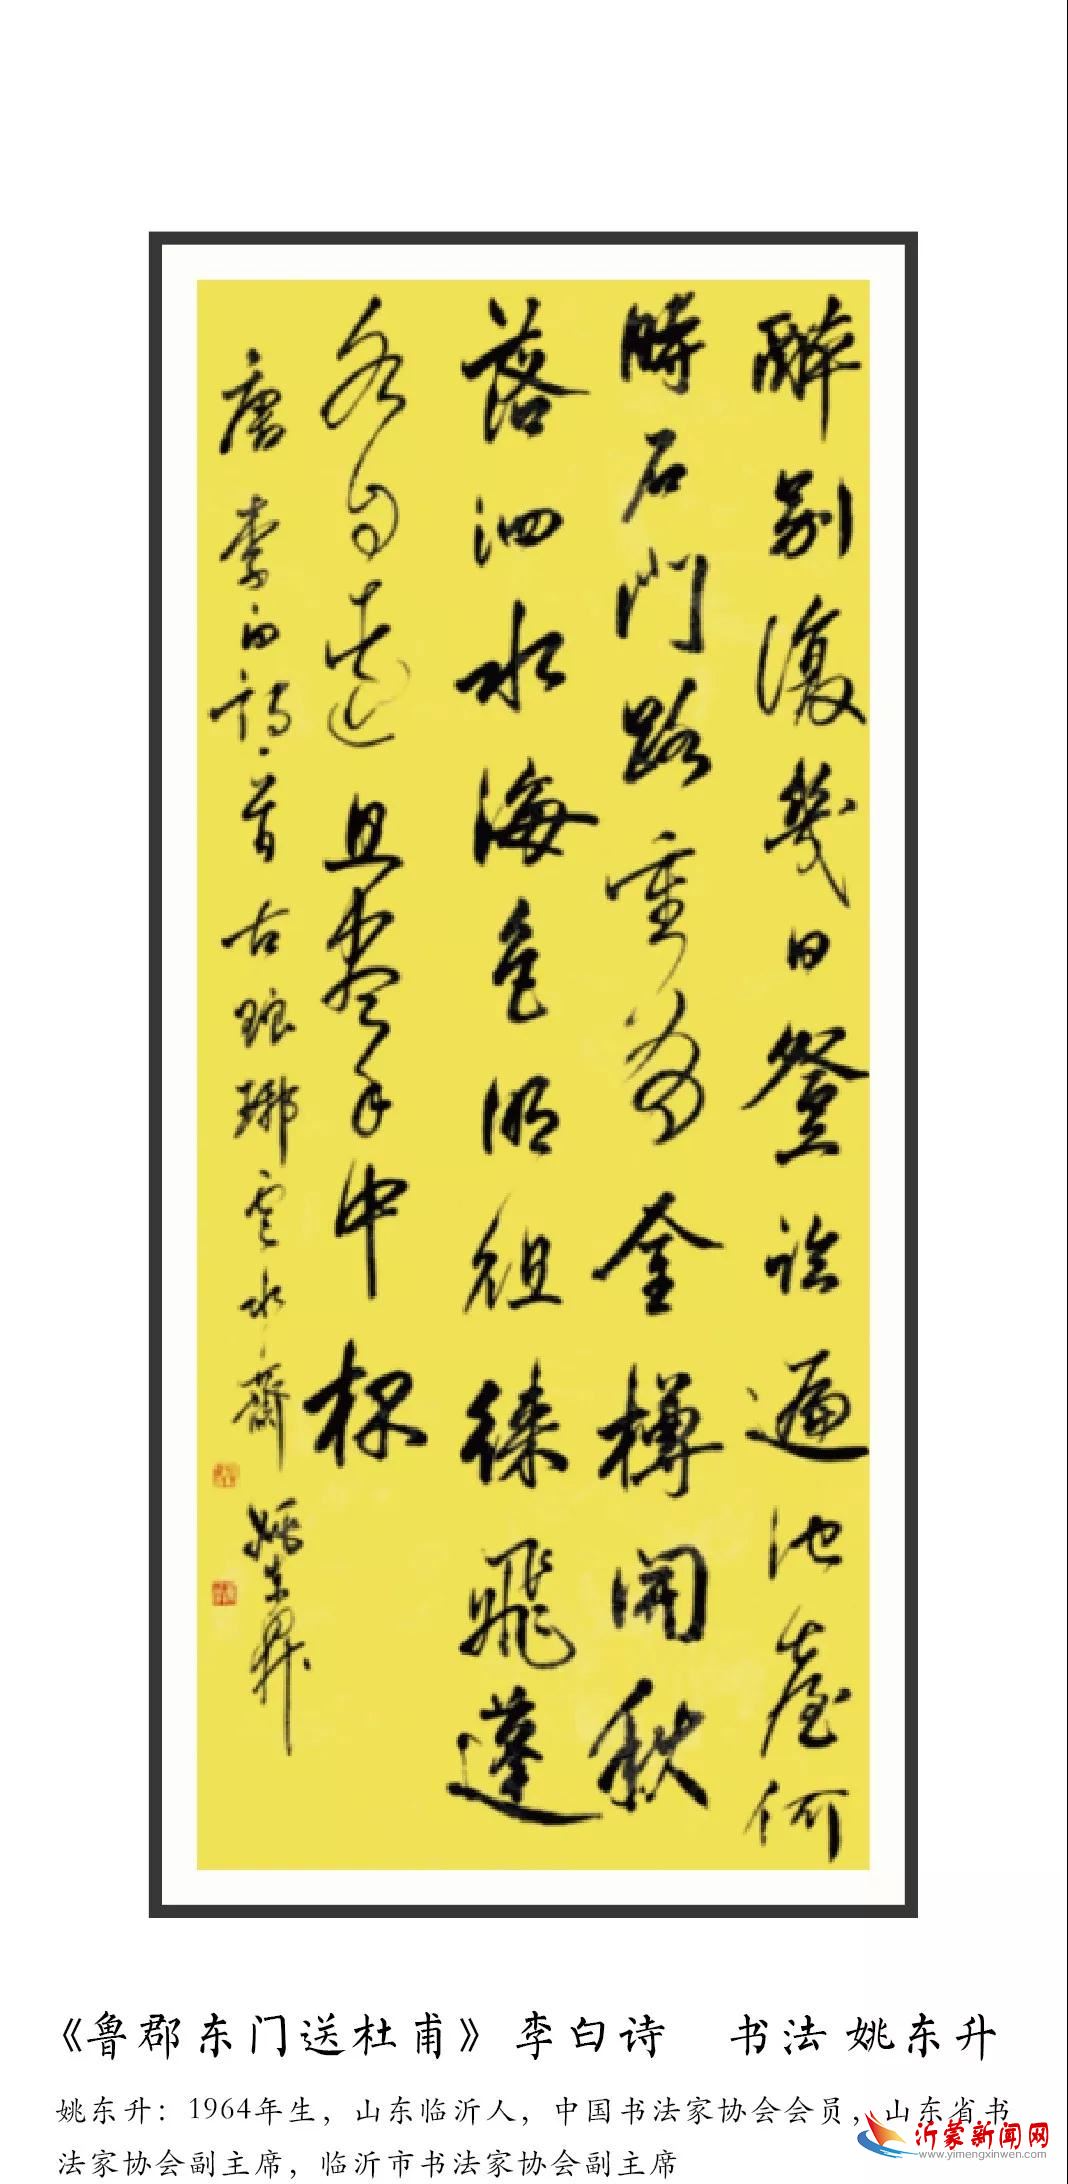 醉別復幾日登臨遍池臺何
時石門路重有金樽開秋
落泗水海色明徂徠飛蓬
各自遠且盡手中杯
唐李白詩一首古琅琊雲水齋姚東昇
《鲁郡东门送杜甫》李白诗 书法 姚东升
姚东升：1964年生，山东临沂人，中国书法家协会会员，山东省书
法家协会副主席，临沂市书法家协会副主席
沂蒙新闻网
www.yimengxinwen.com